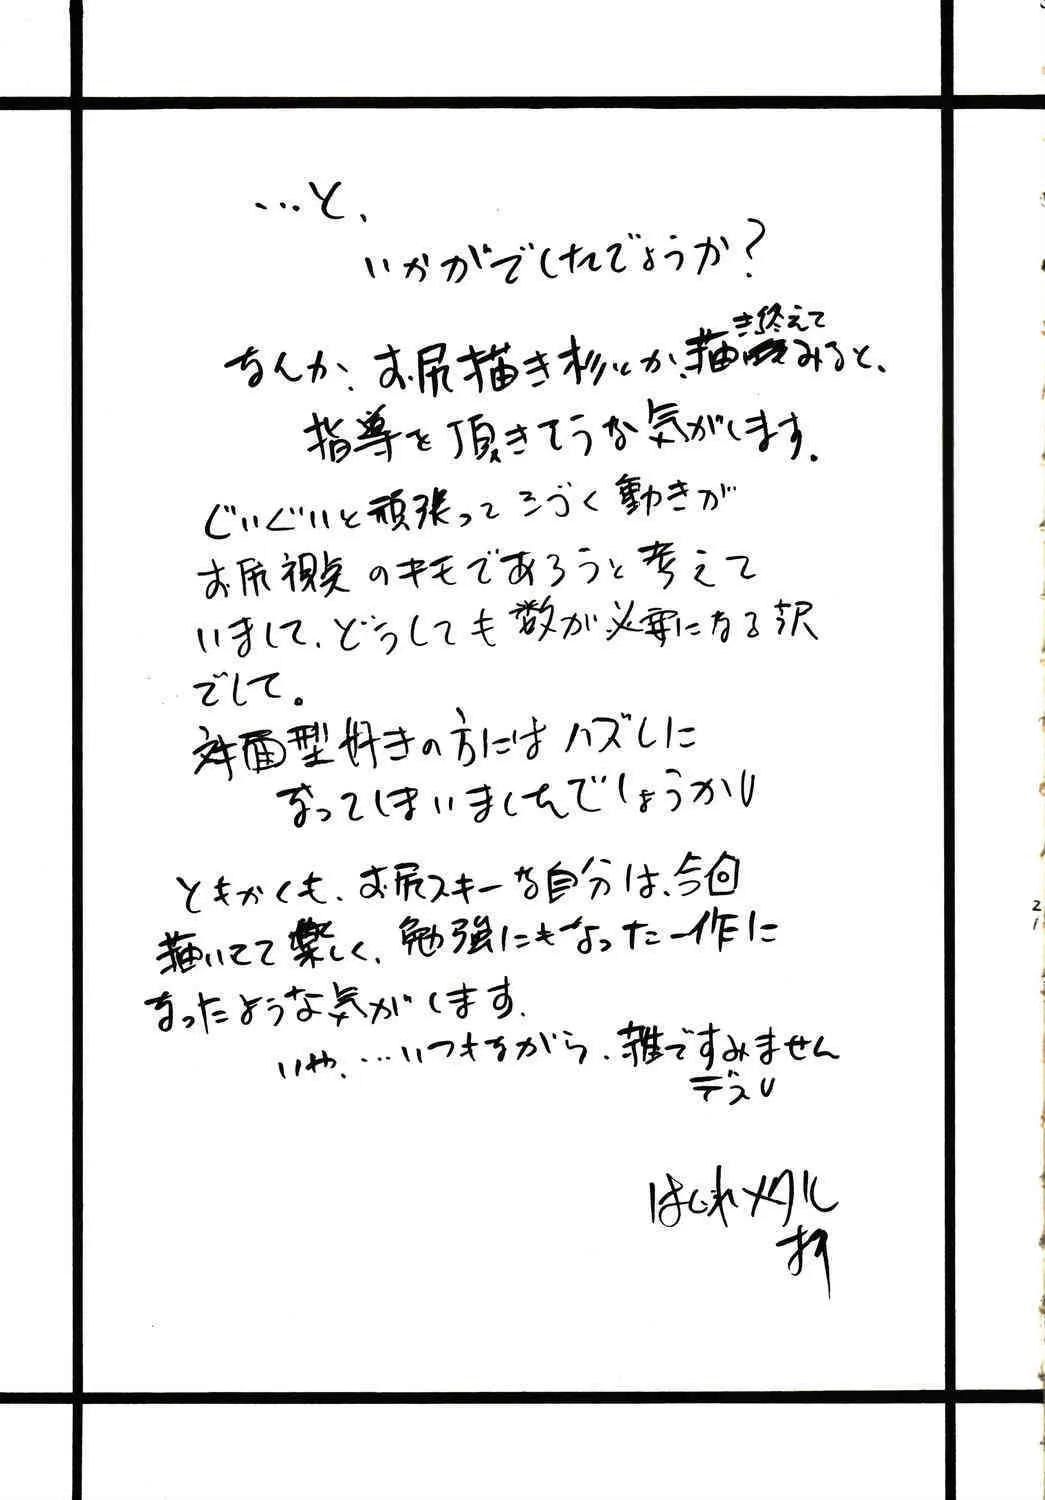 …と、
いかがでしたでしょうか?
なんか、お尻描き杉とか、描き終えてみると、
指導を頂きそうな気がします。
ぐいぐいと頑張って 動きが
お尻視点のキモであろうと考えて
いまして、どうしても数が必要になる訳
でして。
対面型好きの方にはハズしに
なってしまいましたでしょうか
ともかくも、お尻スキーな自分は、今回
描いてて楽しく、勉強にもなった一作に
なったような気がします。
いや、…いつもながら、雑ですみません
デス
21